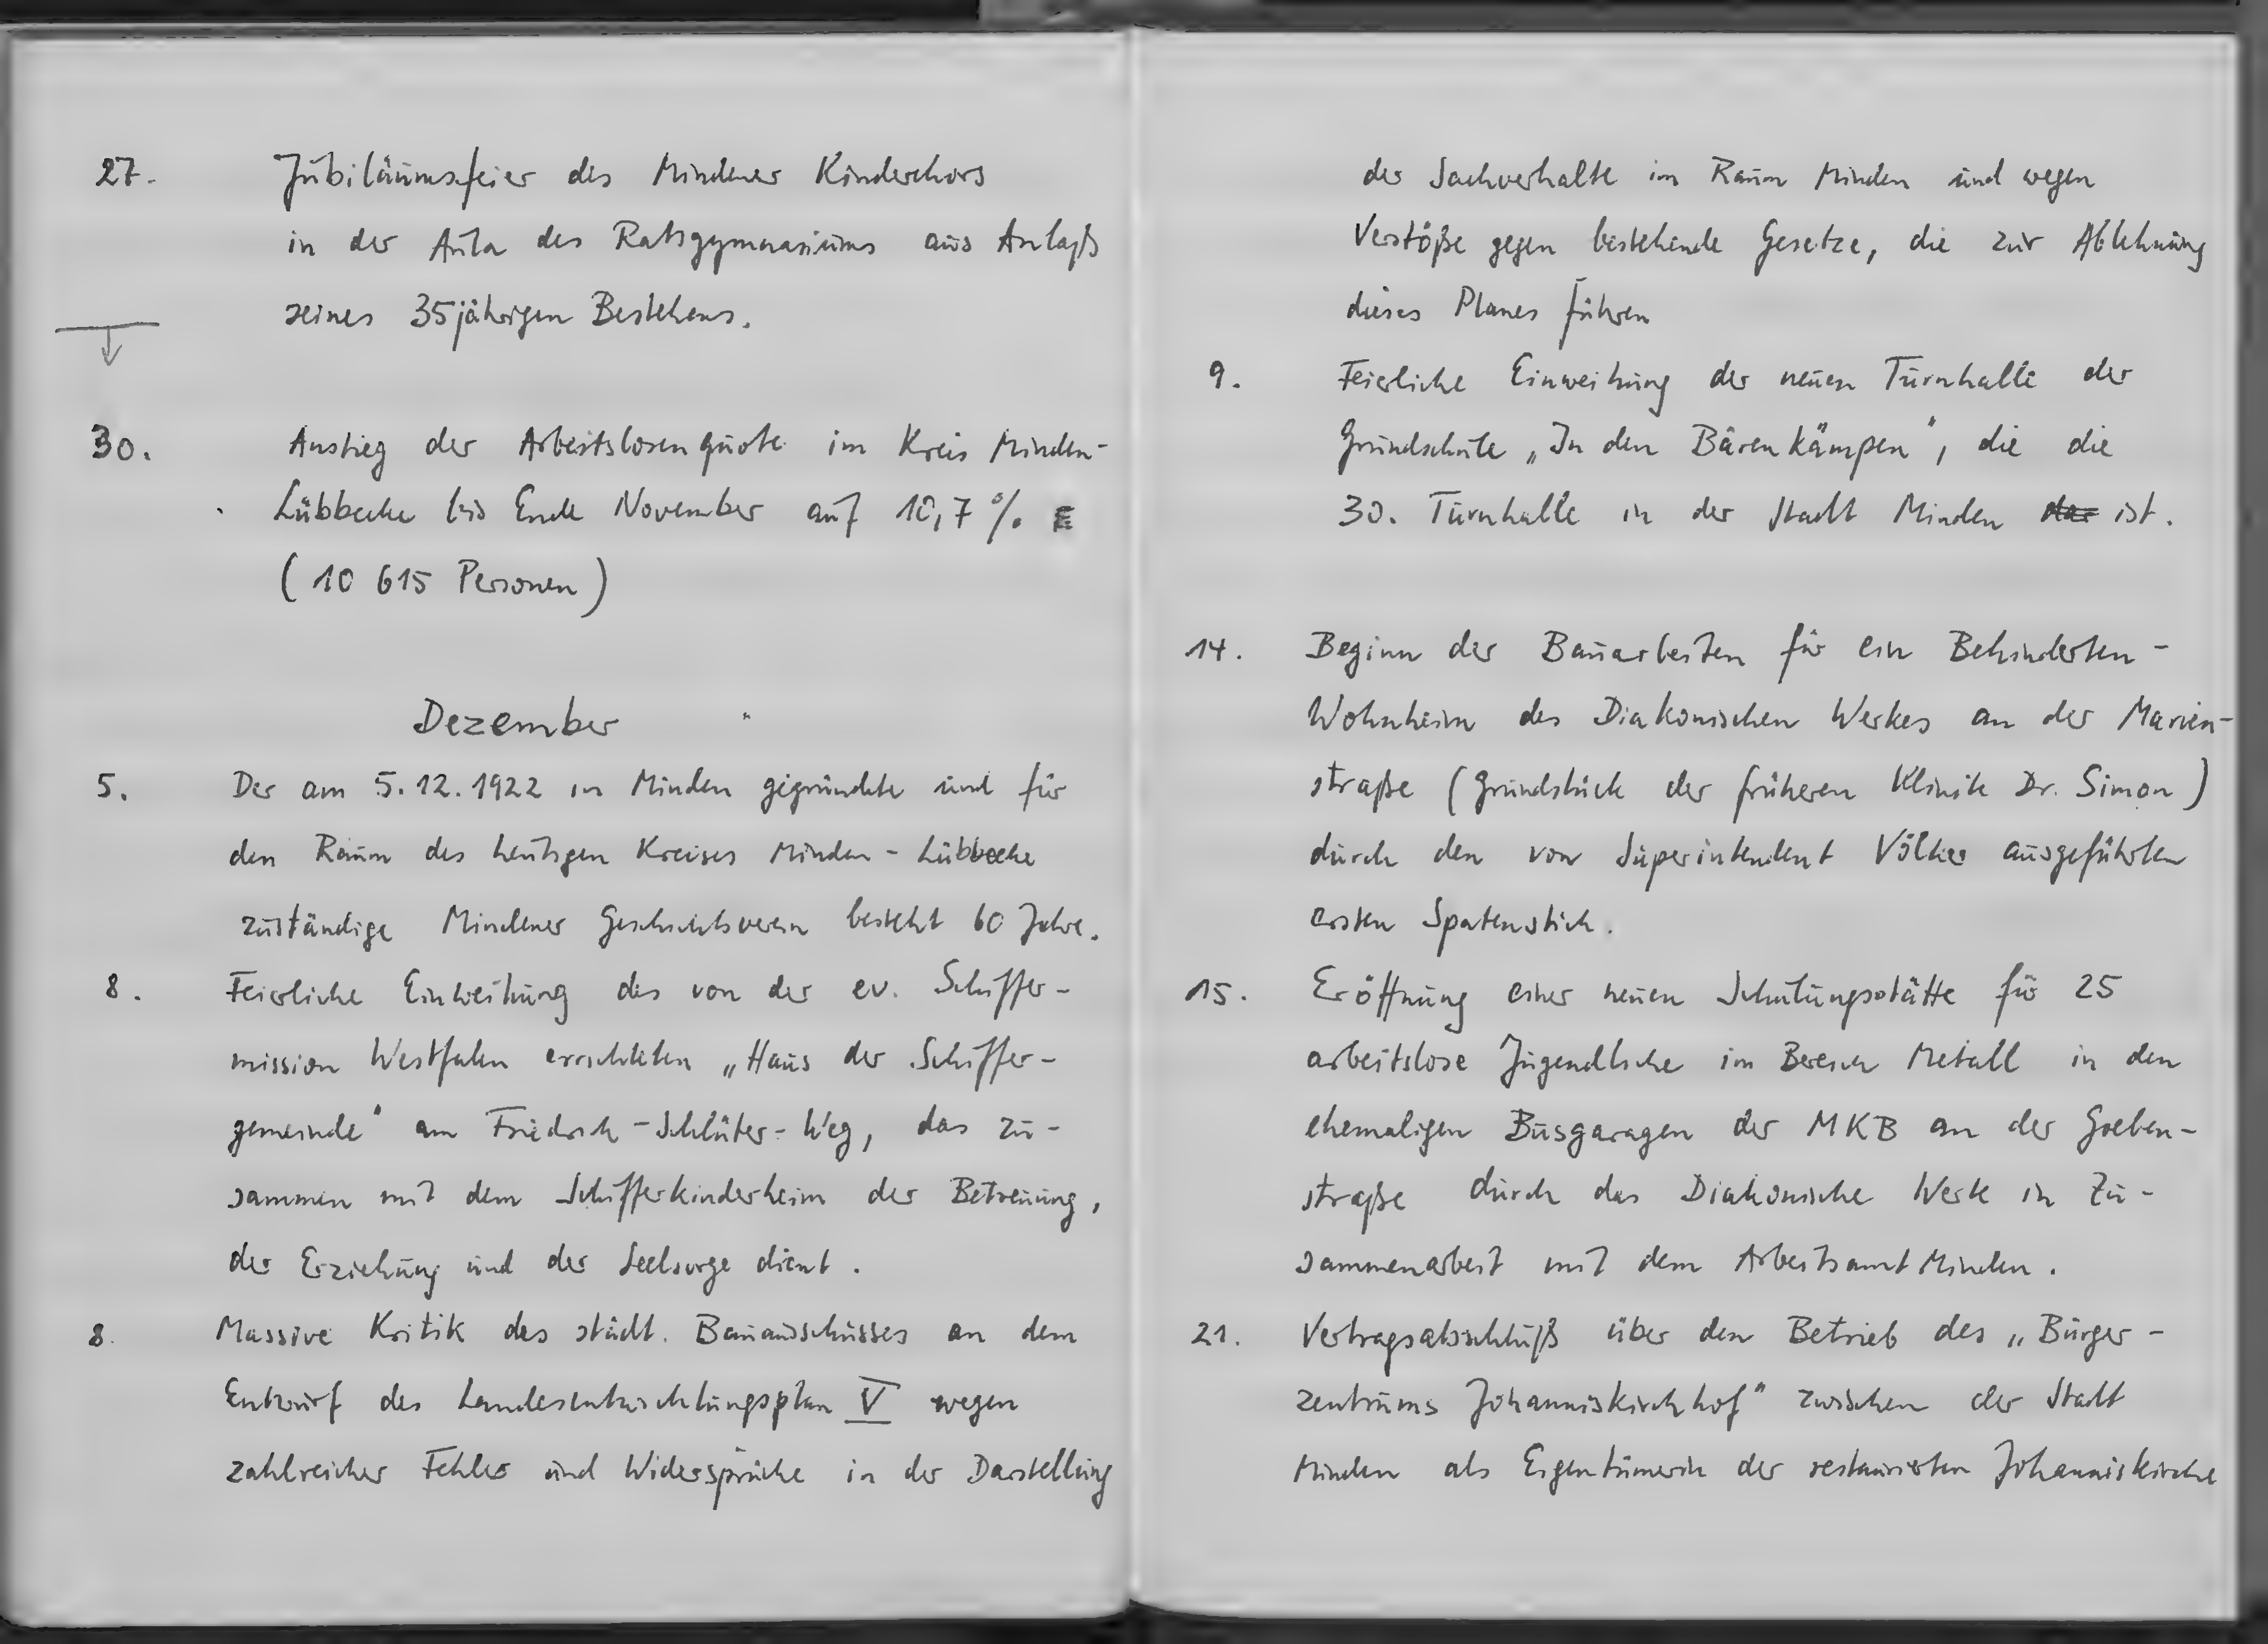 27. Jubiläumsfeier des Mindener Kinderchors
in der Aula des Ratsgymnasiums aus Anlaß
seines 35jährigen Bestehens.
30. Anstieg der Arbeitslosenquote im Kreis Minden-
Lübbecke bis Ende November auf 10,7 %
(10 615 Personen)
Dezember
5. Der am 5.12.1922 in Minden gegründete und für
den Raum des heutigen Kreises Minden-Lübbecke
zuständige Mindener Geschichtsverein besteht 60 Jahre.
8. Feierliche Einweihung des von der ev. Schiffer-
mission Westfalen errichteten „Haus der Schiffer-
gemeinde" am Friedrich-Schlüter-Weg, das zu-
sammen mit dem Schifferkinderheim der Betreuung,
der Erziehung und der Seelsorge dient.
8. Massive Kritik des städt. Bauausschusses an dem
Entwurf des Landesentwicklungsplan V wegen
zahlreicher Fehler und Widersprüche in der Darstellung
der Sachverhalte im Raum Minden und wegen
Verstöße gegen bestehende Gesetze, die zur Ablehnung
dieses Planes führen
9. Feierliche Einweihung der neuen Turnhalle der
Grundschule „In den Bärenkämpen", die die
30. Turnhalle in der Stadt Minden dar ist.
14. Beginn der Bauarbeiten für ein Behinderten-
Wohnheim des Diakonischen Werkes an der Marien-
straße (Grundstück der früheren Klinik Dr. Simon)
durch den von Superintendent Völker ausgeführten
ersten Spatenstich.
15. Eröffnung einer neuen Schulungsstätte für 25
arbeitslose Jugendliche im Bereich Metall in den
ehemaligen Busgaragen der MKB an der Goeben-
straße durch das Diakonische Werk in Zu-
sammenarbeit mit dem Arbeitsamt Minden.
21. Vertragsabschluß über den Betrieb des „Bürger-
zentrums Johanniskirchhof" zwischen der Stadt
Minden als Eigentümerin der restaurierten Johanniskirche